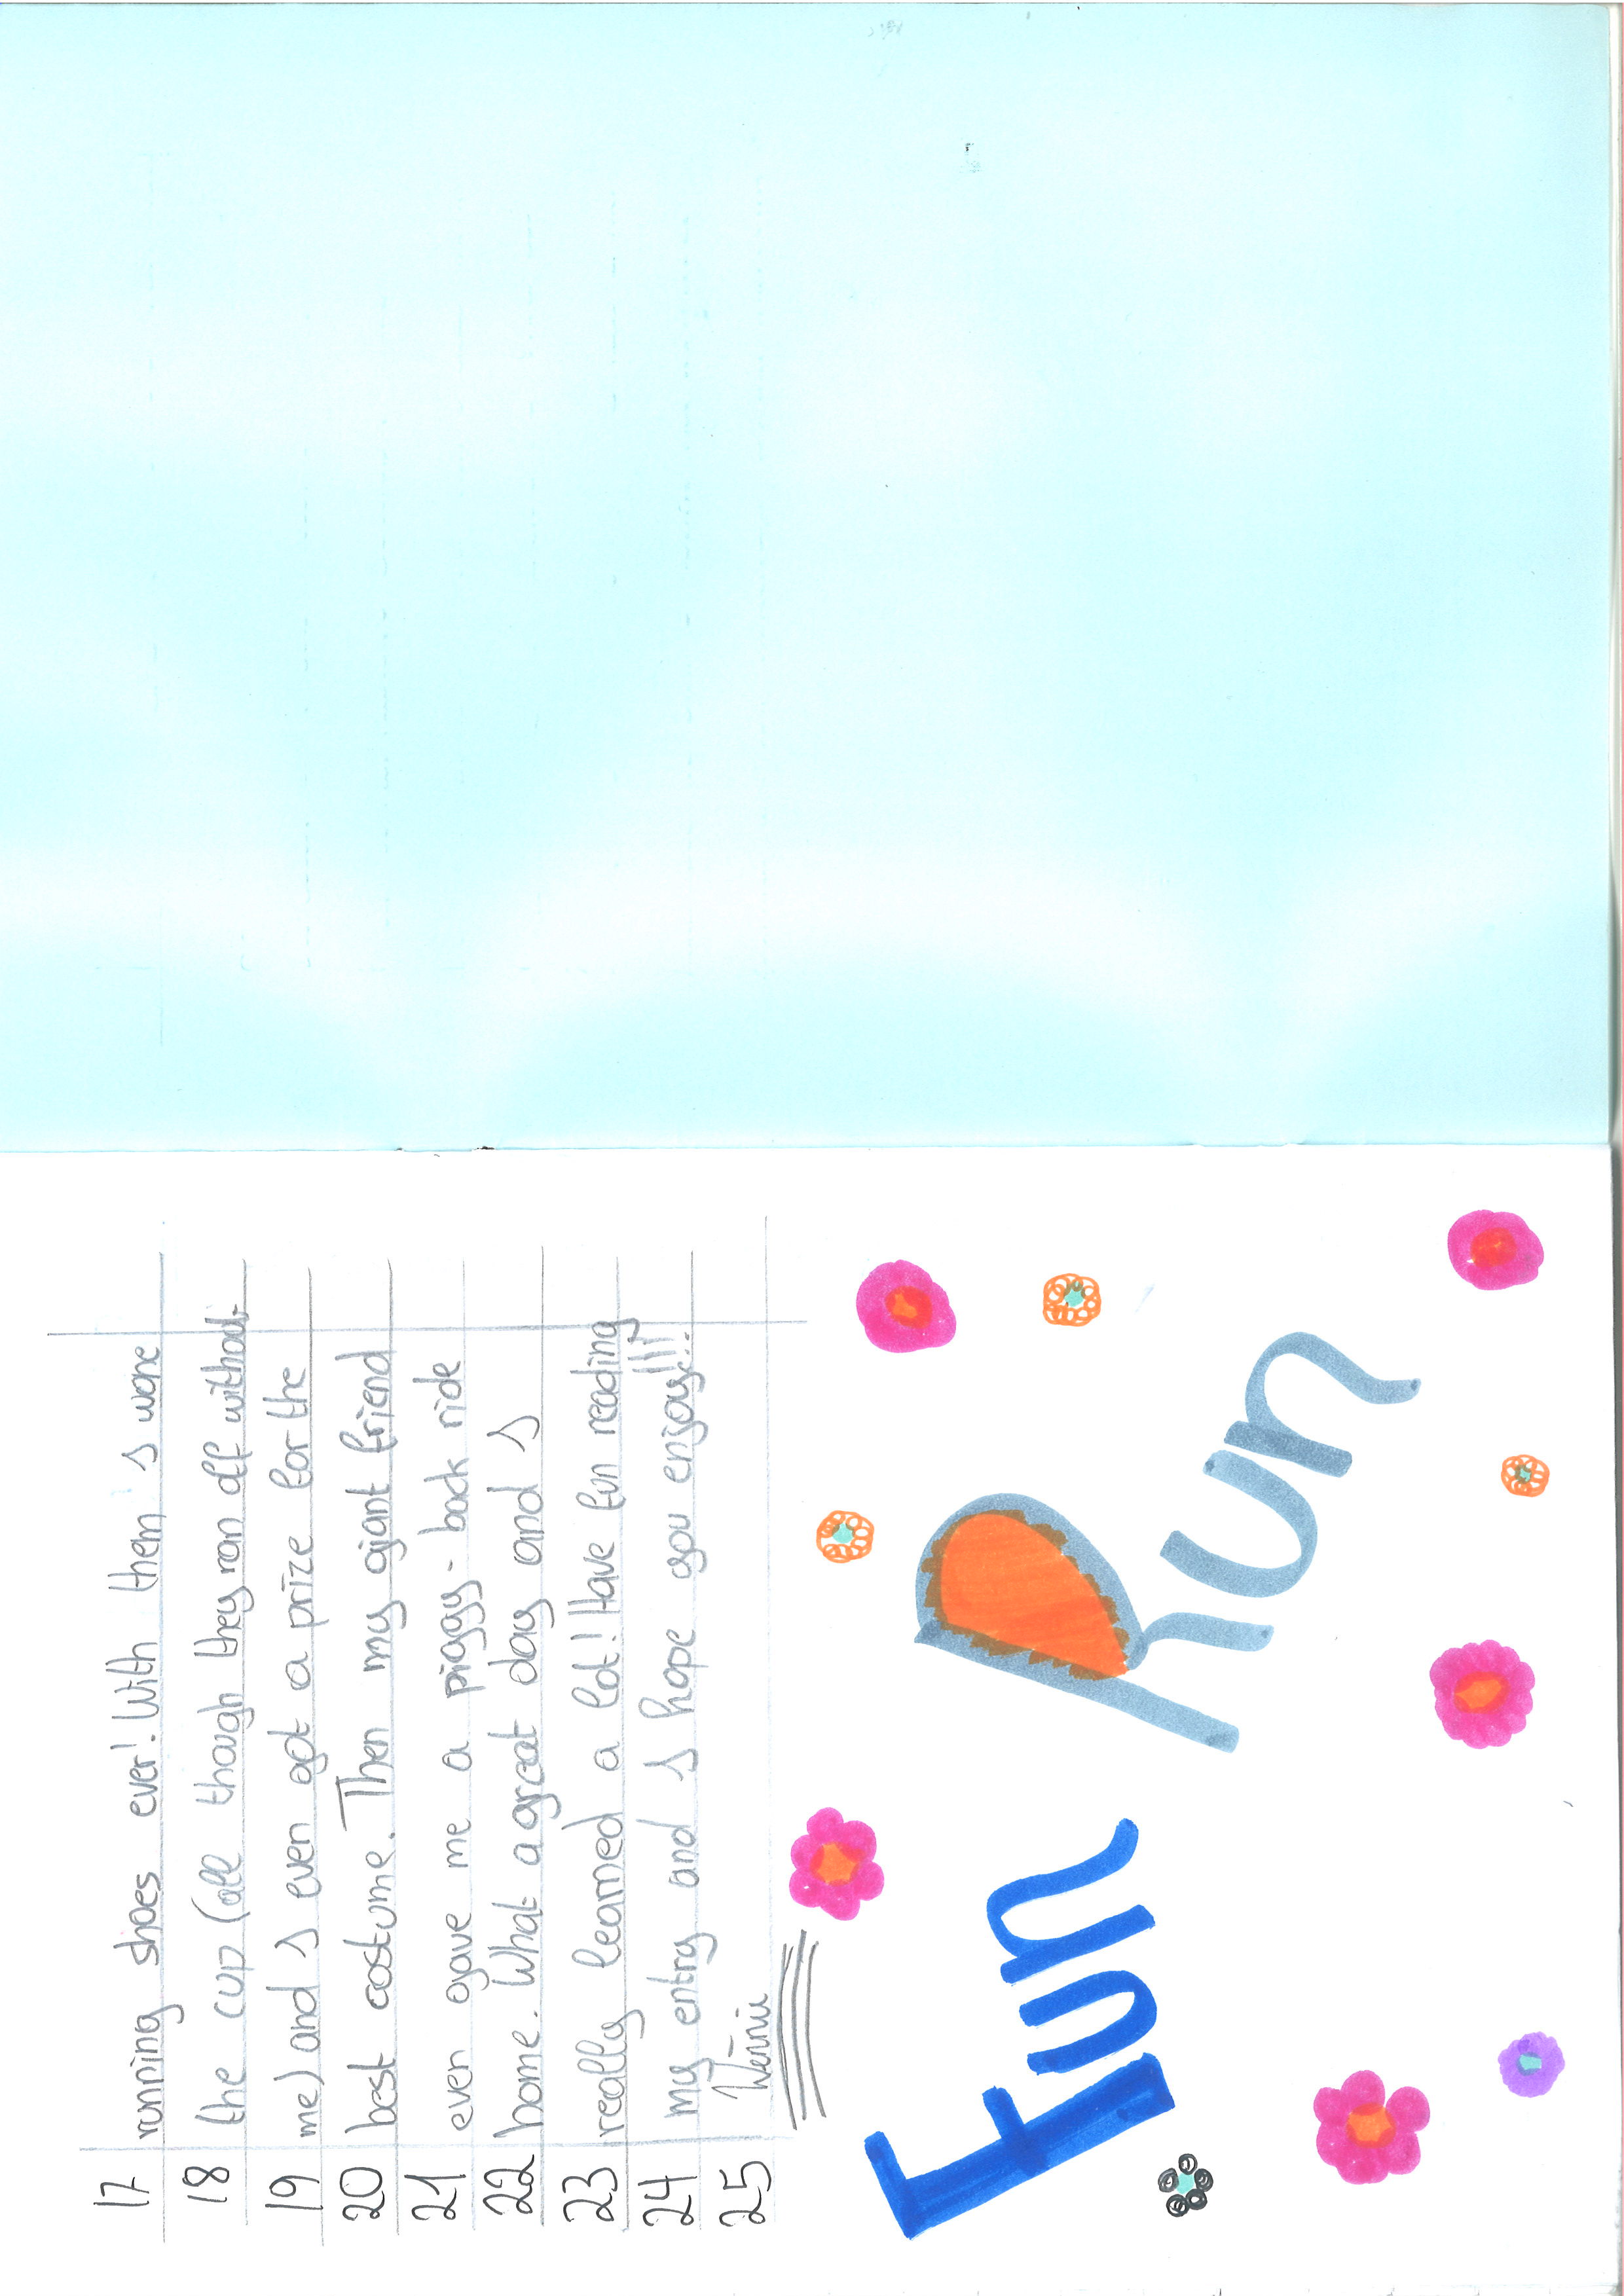 17 running shoes ever! With them I wone
18 the cup (all though they ran off without
19 me) and I even got a prize for the
20 best costume. Then my giant friend
21 even gave me a piggy-back ride
22 home. What a great day and I
23 really learned a lot! Have fun reading
24 my entry and I hope you enjoy!!!
25 Winnie
Fun Run